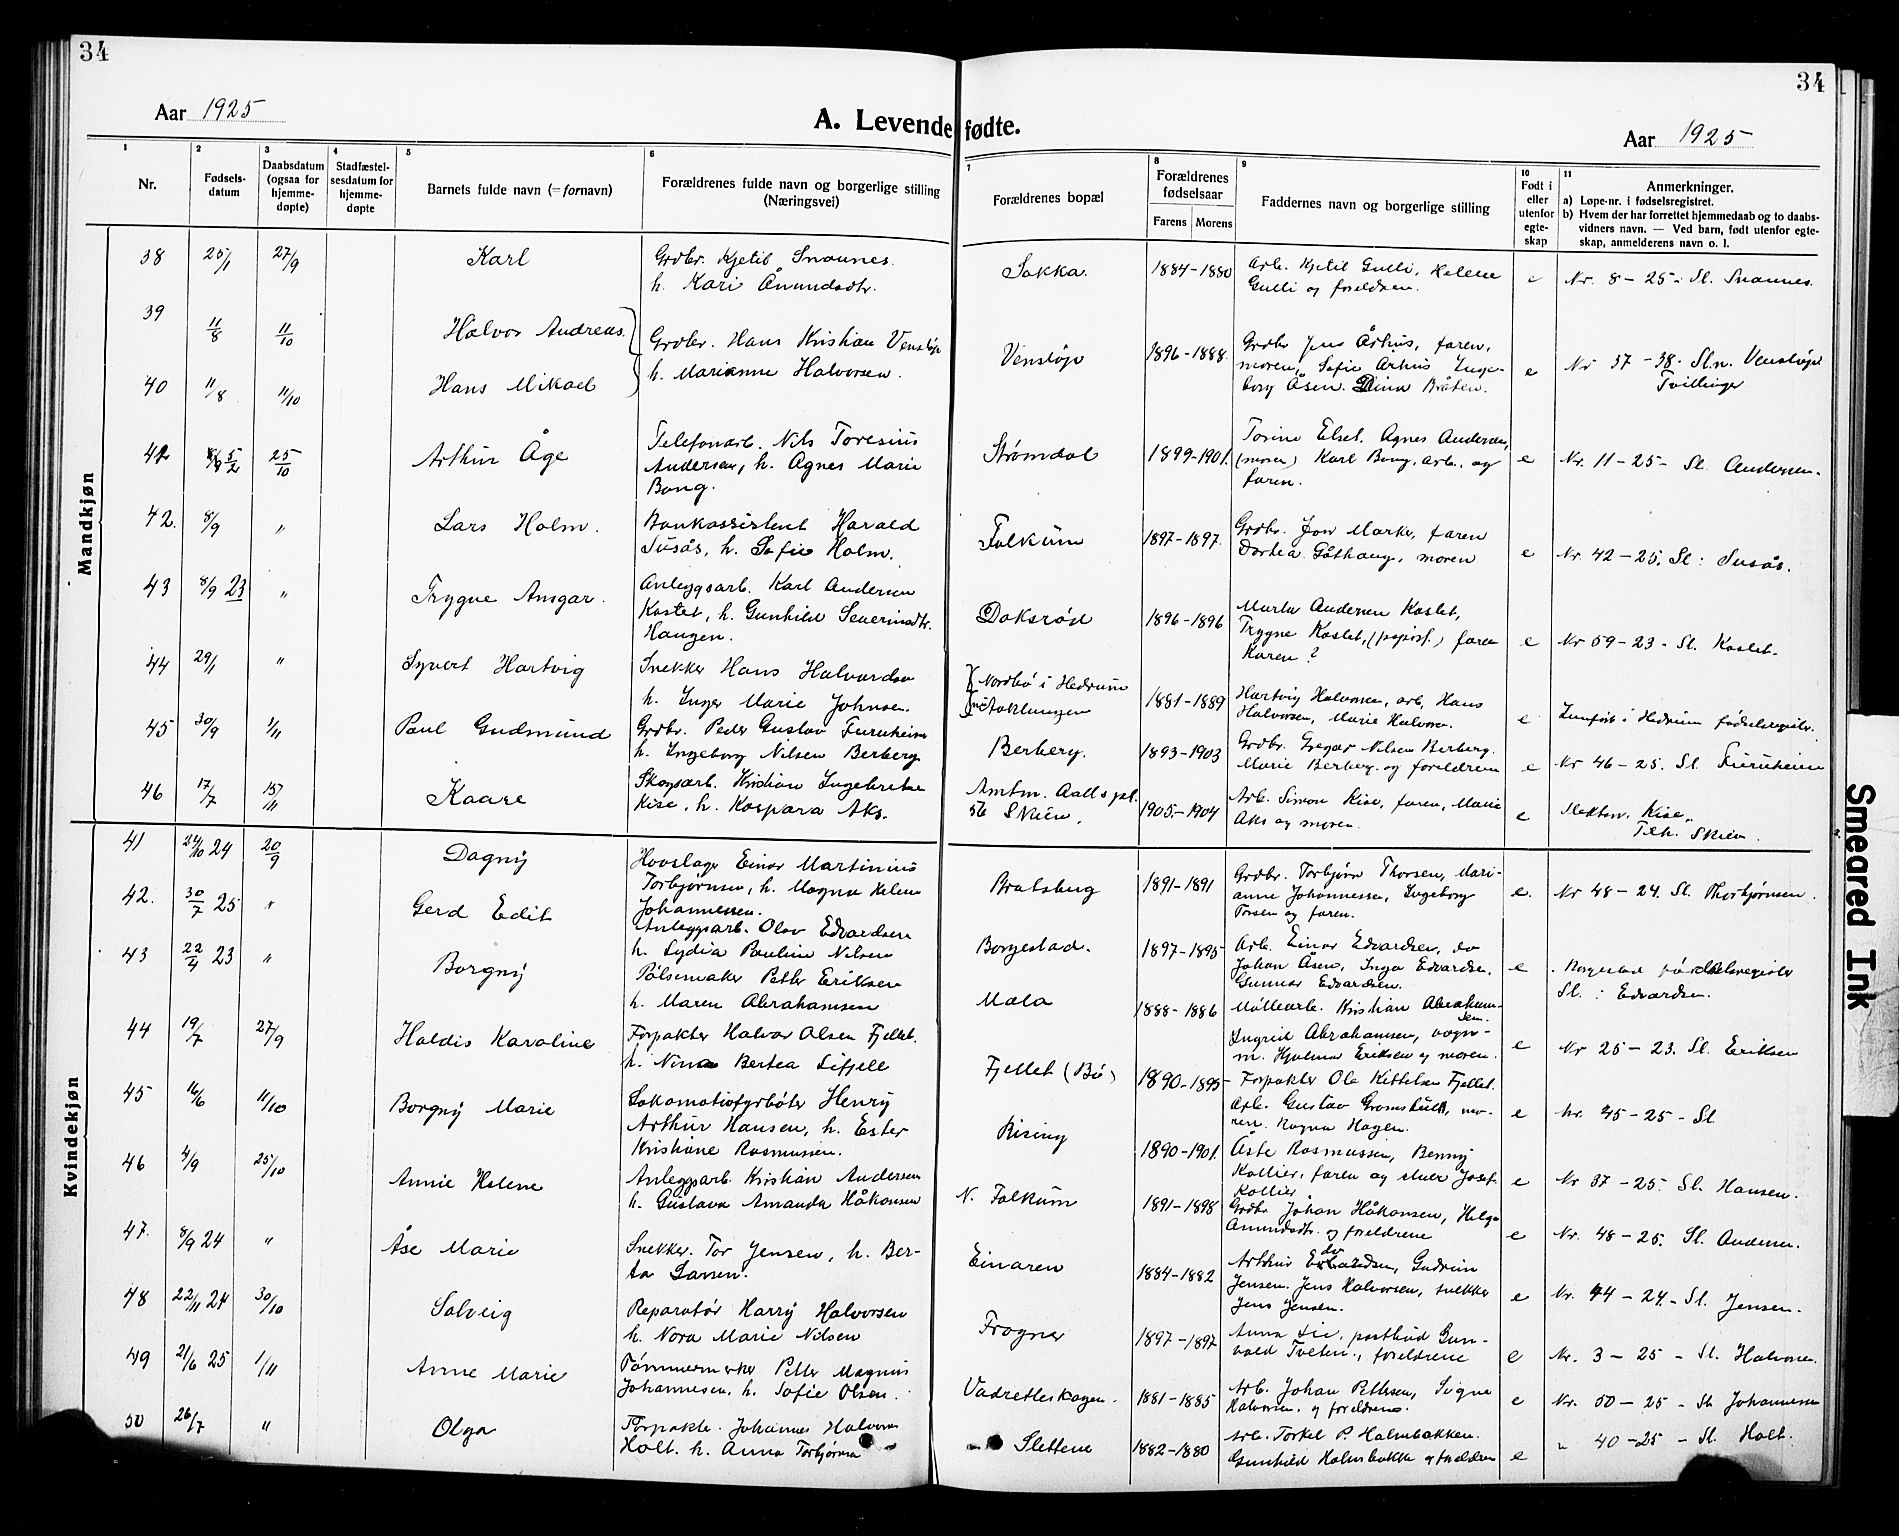 34
34
Aar 1925
A. Levende fødte.
Aar 1925
1
Nr.
2
Fødsels-
datum
3
Daabsdatum
(ogsaa for
hjemme-
døpte)
4
Stadfæstel-
sesdatum for
hjemme-
døpte
5
Barnets fulde navn (=fornavn)
6
Forældrenes fulde navn og borgerlige stilling
(Næringsvei)
7
Forældrenes bopæl
8
Forældrenes
fødselsaar
Farens Morens
9
Faddernes navn og borgerlige stilling
10
Født i
eller
utenfor
egte-
skap
11
Anmerkninger.
a) Løpe-nr. i fødselsregistret.
b) Hvem der har forrettet hjemmedaab og to daabs-
vidners navn. — Ved barn, født utenfor egte-
skap, anmelderens navn o. l.
Mandkjøn
38 25/1 27/9 Karl
Grdbr. Kjetil Snaunes
h. Kari Åmundsdtr.
Sakka. 1884-1880
Arb. Kjetil Gulli, Helene
Gulli og foreldren.
e Nr. 8-25- Sl. Snaunes.
39 11/8 11/10 Halvor Andreas
40 11/8 11/10 Hans Mikael
Grdbr. Hans Kristian Venstøp
h. Marianne Halvorsen.
Venstøp 1896-1888.
Grdbr Jens Århus, faren,
moren, Sofie Århus, Inge-
borg Åsen. Dina Bråten.
e Nr 37-38- Sl.n. Venstøp
Tvillinger
41 5/2 25/10 Arthur Åge
Telefonarb. Nils Toresius
Andersen, h. Agnes Marie
Bong.
Strømdal 1899-1901.
Torine Elset. Agnes Andersen,
(moren) Karl Bong, arb., og
faren.
e Nr. 11-25- Sl. Andersen.
42. 8/9 " Lars Holm.
Bankassistent Harald
Susås, h. Sofie Holm.
Falkum 1897-1897.
Grdbr. Jon Marker, faren
Dortea Gåthaug, moren
e Nr 42-25. Sl: Susås.
43 8/9 23 " Trygve Ansgar.
Anleggsarb. Karl Andersen
Kastet, h. Gunhild Severinsdtr.
Haugen.
Doksrød 1896-1896
Marta Andersen Kastet,
Trygve Kastet, faren
Karen?
e Nr 59-23- Sl. Kastet.
44 29/1 " Syvert Hartvig
Snekker Hans Halvardsen
h. Inger Marie Johnsen.
Nordbø i Hedrum
1881-1889
Hartvig Halvorsen, arb, Hans
Halvorsen, Marie Halvorsen.
e Innført i Hedrum fødselsregister.
45 30/9 1/11 Paul Gudmund
Grdbr. Peder Gustav Furuheim
h. Ingeborg Nilsen Berberg
Berberg. 1893-1903
Grdbr. Gregar Nilsen Berberg.
Marie Berberg. og foreldrene
e Nr 46-25. Sl. Furuheim
46 17/7 15/11 Kaare
Skogsarb. Kristian Ingebretsen
Kise, h. Kaspara Aks.
Amtm. Aalls gt.
56 Skien. 1905-1904
Arb. Simon Kise, faren, Marie
Aks og moren.
e Kise,
Tlh. Skien.
Kvindekjøn
41 24/10 24 20/9 Dagny
Hovslager Einar Martinius
Torbjørnsen, h. Magna Helene
Johannessen.
Bratsberg 1891-1891
Grdbr. Torbjørn Thorsen, Mari-
anne Johannessen, Ingeborg
Torsen og faren.
e. Nr 48-24. Sl. Thorbjørnsen.
42. 30/7 25 " Gerd Edit
Anleggsarb. Olav Edvardsen
h. Lydia Pauline Nilsen
Borgestad. 1897-1895
Arb. Einar Edvardsen, do
Johan Åsen, Inga Edvardsen,
Gunnar Edvardsen.
e Borgestad fødselsregister
Sl.: Edvardsen.
43 22/4 23 " Borgny
Pølsemaker Petter Eriksen
h. Maren Abrahamsen
Mæla 1888-1886
Møllearb. Kristian Abraham-
sen.
Ingrid Abrahamsen, vogn-
m. Hjalmar Eriksen og moren.
e Nr 25-23. Sl. Eriksen
44 19/7 27/9 Haldis Karoline
Forpakter Halvor Olsen Fjellet.
h. Nina Bertea Lifjell
Fjellet (Bø) 1890-1895
Forpakter Ole Kittelsen Fjellet.
Arb. Gustav Gromstull, mo-
ren. Ragna Hagen.
e Nr. 45-25- Sl
45 16/6 11/10 Borgny Marie
Lokomotivfyrbøter Henry
Arthur Hansen, h. Ester
Kristiane Rasmussen.
Rising 1890-1901.
Åste Rasmussen, Benny
Kollier, faren og Josef
Kollier
e Nr 37-25. Sl. Hansen.
46 4/9 25/10 Annie Helene
Anleggsarb. Kristian Andersen
h. Gustava Amanda Håkonsen
N. Falkum 1891-1898
Grdbr Johan Håkonsen, Helga
Amundsdtr. og foreldrene
e Nr. 48-25. Sl. Andersen.
47. 8/9 24 " Åse Marie
Snekker. Tor Jensen, h. Ber-
ta Larsen.
Einaren 1884-1882
Arthur Edvardsen, Gudrun
Jensen. Jens Halvorsen, snekker
Jens Jensen.
e Nr. 44-24.- Sl. Jensen.
48 22/11 24 30/10 Solveig
Reparatør Harry Halvorsen
h. Nora Marie Nilsen
Frogner 1897-1897
Anna Lie, postbud Gun-
vald Tveten., foreldrene
e Nr. 3-25- Sl. Halvorsen.
49 21/6 25 1/11 Anne Marie
Tømmermerker Petter Magnus
Johannesen. h. Sofie Olsen.
Vadretteskogen. 1881-1885
Arb. Johan Pettersen, Signe
Halvorsen. og foreldrene.
e Nr. 50-25- Sl. Johannesen
50 26/7 " Olga
Forpakter. Johannes Halvorsen
Holt. h. Anna Torbjørnsen
Slettene 1882-1880
Arb. Torkel P. Holmbakken.
Gunhild Holmbakken og foreldrene
e " 40-25- Sl. Holt.
Smeared Ink